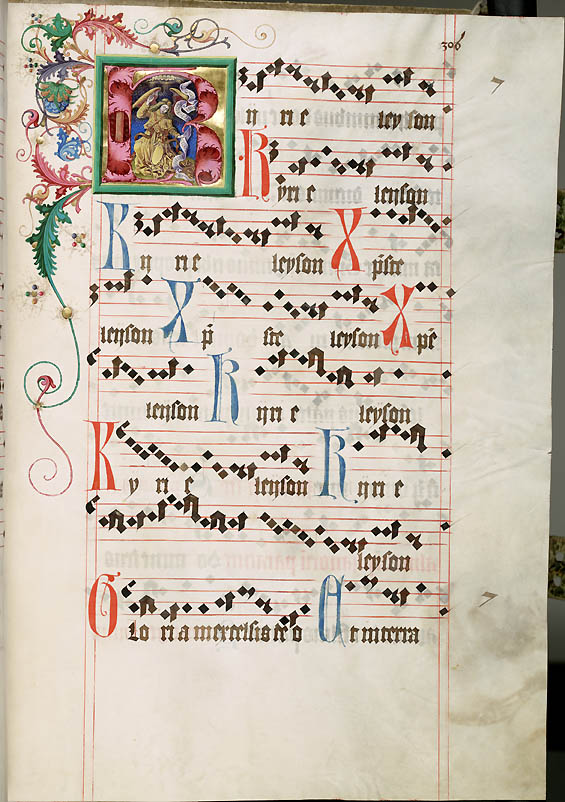 306
Ky ri e leyson
Kyri e leyson
Ky ri e leyson Xp̄ste
leyson Xp̄ ste leyson Xpē
leyson Kyri e leyson
Ky ri e leyson Kyri e
leyson
Glo ri a in excelsis deo Et in terra